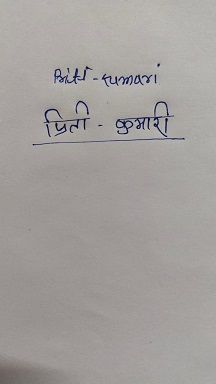 Priti - kumari
प्रिती - कुमारी